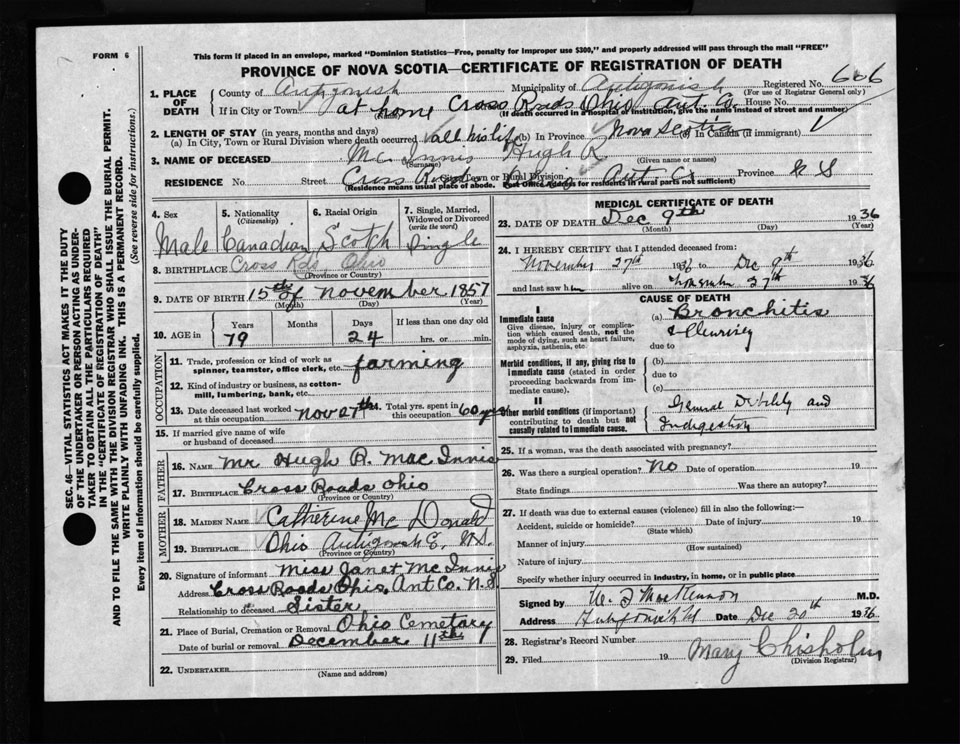 FORM 6
This form if placed in an envelope, marked "Dominion Statistics—Free, penalty for improper use $300," and properly addressed will pass through the mail "FREE"
PROVINCE OF NOVA SCOTIA—CERTIFICATE OF REGISTRATION OF DEATH
1. PLACE OF DEATH
County of Antigonish Municipality of Antigonish Registered No. 606
(For use of Registrar General only)
If in City or Town at home Cross Roads Ohio Ant. Co. House No.
(If death occurred in a hospital or institution, give the name instead of street and number)
2. LENGTH OF STAY (in years, months and days)
(a) In City, Town or Rural Division where death occurred all his life (b) In Province Nova Scotia (c) In Canada (if immigrant)
3. NAME OF DECEASED Mc Innis Hugh R
(Surname) (Given name or names)
RESIDENCE No. Street Cross Roads City, Town or Rural Division Ant Co Province N S
(Residence means usual place of abode. Post Office Address for residents in rural parts not sufficient)
4. Sex Male
5. Nationality (Citizenship) Canadian
6. Racial Origin Scotch
7. Single, Married, Widowed or Divorced (write the word) Single
8. BIRTHPLACE Cross Rds, Ohio
(Province or Country)
9. DATE OF BIRTH 15th of November 1857
(Month) (Day) (Year)
10. AGE in Years 79 Months Days 24 If less than one day old hrs. or min.
OCCUPATION
11. Trade, profession or kind of work as spinner, teamster, office clerk, etc. farming
12. Kind of industry or business, as cotton-mill, lumbering, bank, etc.
13. Date deceased last worked at this occupation Nov 27th 14. Total yrs. spent in this occupation 60 yrs
15. If married give name of wife or husband of deceased
FATHER
16. NAME Mr Hugh R. Mac Innis
17. BIRTHPLACE Cross Roads Ohio
(Province or Country)
MOTHER
18. MAIDEN NAME Catherine Mc Donald
19. BIRTHPLACE Ohio Antigonish Co, N.S.
(Province or Country)
20. Signature of informant Miss Janet Mc Innis
Address Cross Roads Ohio, Ant Co. N.S
Relationship to deceased Sister
21. Place of Burial, Cremation or Removal Ohio Cemetary
Date of burial or removal December 11th
22. UNDERTAKER
(Name and address)
MEDICAL CERTIFICATE OF DEATH
23. DATE OF DEATH Dec 9th 1936
(Month) (Day) (Year)
24. I HEREBY CERTIFY that I attended deceased from:
November 27th 1936 to Dec 9th 1936
and last saw him alive on November 27th 1936
CAUSE OF DEATH
I
Immediate cause
Give disease, injury or complication which caused death, not the mode of dying, such as heart failure, asphyxia, asthenia, etc.
(a) Bronchitis
& Pleurisy
due to
Morbid conditions, if any, giving rise to immediate cause (stated in order proceeding backwards from immediate cause).
(b)
due to
(c)
II
Other morbid conditions (if important) contributing to death but not causally related to immediate cause.
General Debility and
Indigestion
25. If a woman, was the death associated with pregnancy?
26. Was there a surgical operation? No Date of operation 19
State findings Was there an autopsy?
27. If death was due to external causes (violence) fill in also the following:—
Accident, suicide or homicide? Date of injury 19
(State which)
Manner of injury
(How sustained)
Nature of injury
Specify whether injury occurred in industry, in home, or in public place
Signed by W. F MacKinnon M.D.
Address Date Dec 20th 1936
28. Registrar's Record Number
29. Filed 19 Mary Chisholm
(Division Registrar)
SEC. 46—VITAL STATISTICS ACT MAKES IT THE DUTY
OF THE UNDERTAKER OR PERSON ACTING AS UNDER-
TAKER TO OBTAIN ALL THE PARTICULARS REQUIRED
IN THE "CERTIFICATE OF REGISTRATION OF DEATH"
AND TO FILE THE SAME WITH THE DIVISION REGISTRAR WHO SHALL ISSUE THE BURIAL PERMIT.
WRITE PLAINLY WITH UNFADING INK. THIS IS A PERMANENT RECORD.
Every item of information should be carefully supplied. (See reverse side for instructions.)